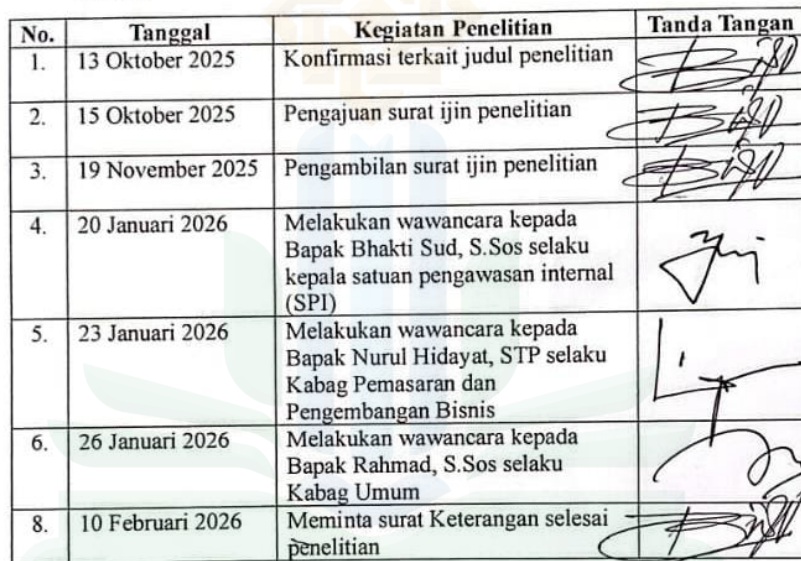 No. Tanggal Kegiatan Penelitian Tanda Tangan
1. 13 Oktober 2025 Konfirmasi terkait judul penelitian
2. 15 Oktober 2025 Pengajuan surat ijin penelitian
3. 19 November 2025 Pengambilan surat ijin penelitian
4. 20 Januari 2026 Melakukan wawancara kepada
Bapak Bhakti Sud, S.Sos selaku
kepala satuan pengawasan internal
(SPI)
5. 23 Januari 2026 Melakukan wawancara kepada
Bapak Nurul Hidayat, STP selaku
Kabag Pemasaran dan
Pengembangan Bisnis
6. 26 Januari 2026 Melakukan wawancara kepada
Bapak Rahmad, S.Sos selaku
Kabag Umum
8. 10 Februari 2026 Meminta surat Keterangan selesai
penelitian